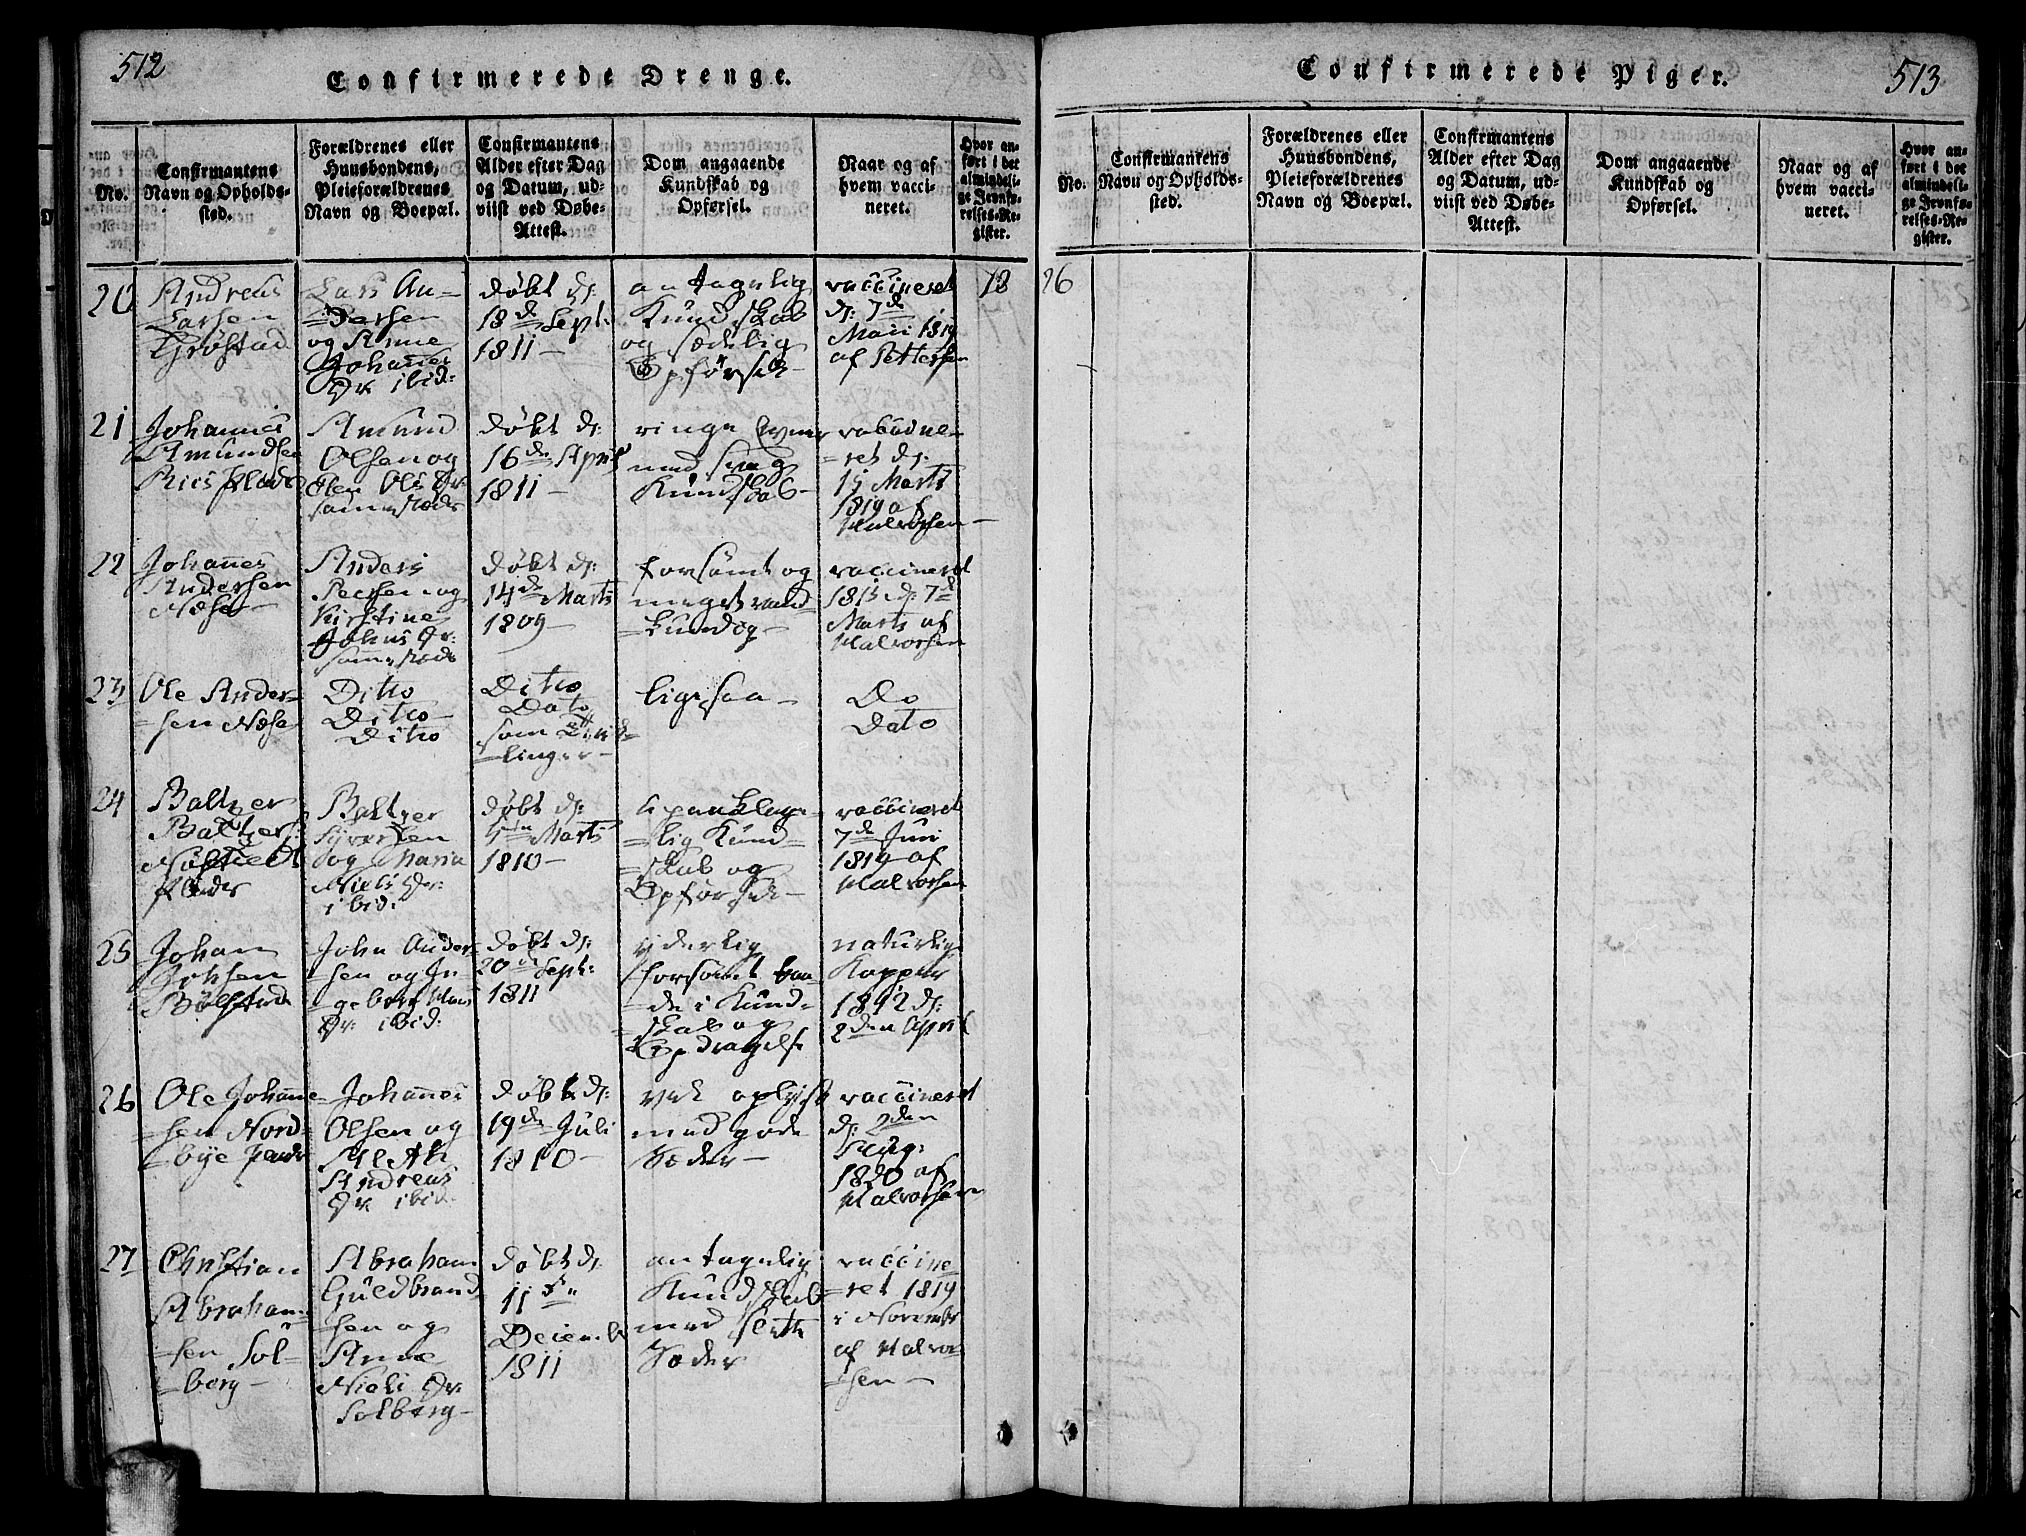 512
Confirmerede Drenge.
No.
Confirmantens
Navn og Opholds-
sted.
Forældrenes eller
Huusbondens,
Pleieforældrenes
Navn og Boepæl.
Confirmantens
Alder efter Dag
og Datum, ud-
viist ved Døbe-
Attest.
Dom angaaende
Kundskab og
Opførsel.
Naar og af
hvem vacci-
neret.
Hvor an-
ført i det
almindeli-
ge Jevnfø-
relses-Re-
gister.
20
Andreas
Larsen
Grøstad
Lars An-
=dersen
og Anne
Johannes
Dr. ibid:
døbt d:
18de Sept:
1811-
antagelig
Kundskab
og sædelig
Opførsel-
vaccineret
d: 7de
Maii 1819
af Pettersen
21
Johannes
Amundsen
Riis plads
Amund
Olsen og
Olea Ols Dr:
samme stæds
døbt d:
16de April
1811-
ringe Evner
med svag
Kundskab-
vaccine-
=ret d:
15 Marts
1819 af
Halvorsen-
22
Johannes
Andersen
Næse
Anders
Peersen og
Kirstine
Johns Dr:
samme stæds
døbt d:
14de Marts
1809-
forsømt og
meget vand-
=kundig-
vaccineret
1815 d: 7d
Marts af
Halvorsen
23
Ole Ander-
=sen Næse
Ditto
Ditto
Ditto
Ditto
Dato
som Tvil-
=linger-
ligesaa-
Do
Dato
24
Baltzer
Baltzers:
plads
Baltzer
Syversen
og Maria
Niels Dr:
ibid:
døbt d:
Marts
1810-
upaaklage-
=lig Kund-
=skab og
Opførsel-
vaccineret
7de Juni
1819 af
Halvorsen
25
Johan
Johsen
Bølstad
John Ander-
=sen og In-
=geborg Hans
Dr: ibid:
døbt d:
20de Sept:
1811
yderlig
forsømt baa-
=de i Kund-
=skab og
Opdragelse
naturlige
Kopper
1812 d:
2den April
26
Ole Johanne-
=sen Nord-
=bye plads
Johannes
Olsen og
Andreas
Dr: ibid:
døbt d:
19de Juli
1810-
vel oplyst
med gode
Sæder-
vaccineret
d: 2den
Aug:
1820 af
Halvorsen
27
Christian
Abraham-
=sen Sol-
=berg-
Abraham
Guldbrand
=sen og
Anne
Niels Dr:
Solberg-
døbt d:
11te
Decemb
1811
antagelig
Kundskab
med
Sæder
vaccine
=ret 1819
i November
af Halvor-
=sen-
18 26
Confirmerede Piger.
513
No.
Confirmantens
Navn og Opholds-
sted.
Forældrenes eller
Huusbondens,
Pleieforældrenes
Navn og Boepæl.
Confirmantens
Alder efter Dag
og Datum, ud-
viist ved Døbe-
Attest.
Dom angaaende
Kundskab og
Opførsel.
Naar og af
hvem vacci-
neret.
Hvor an-
ført i det
almindeli-
ge Jevnfø-
relses-Re-
gister.